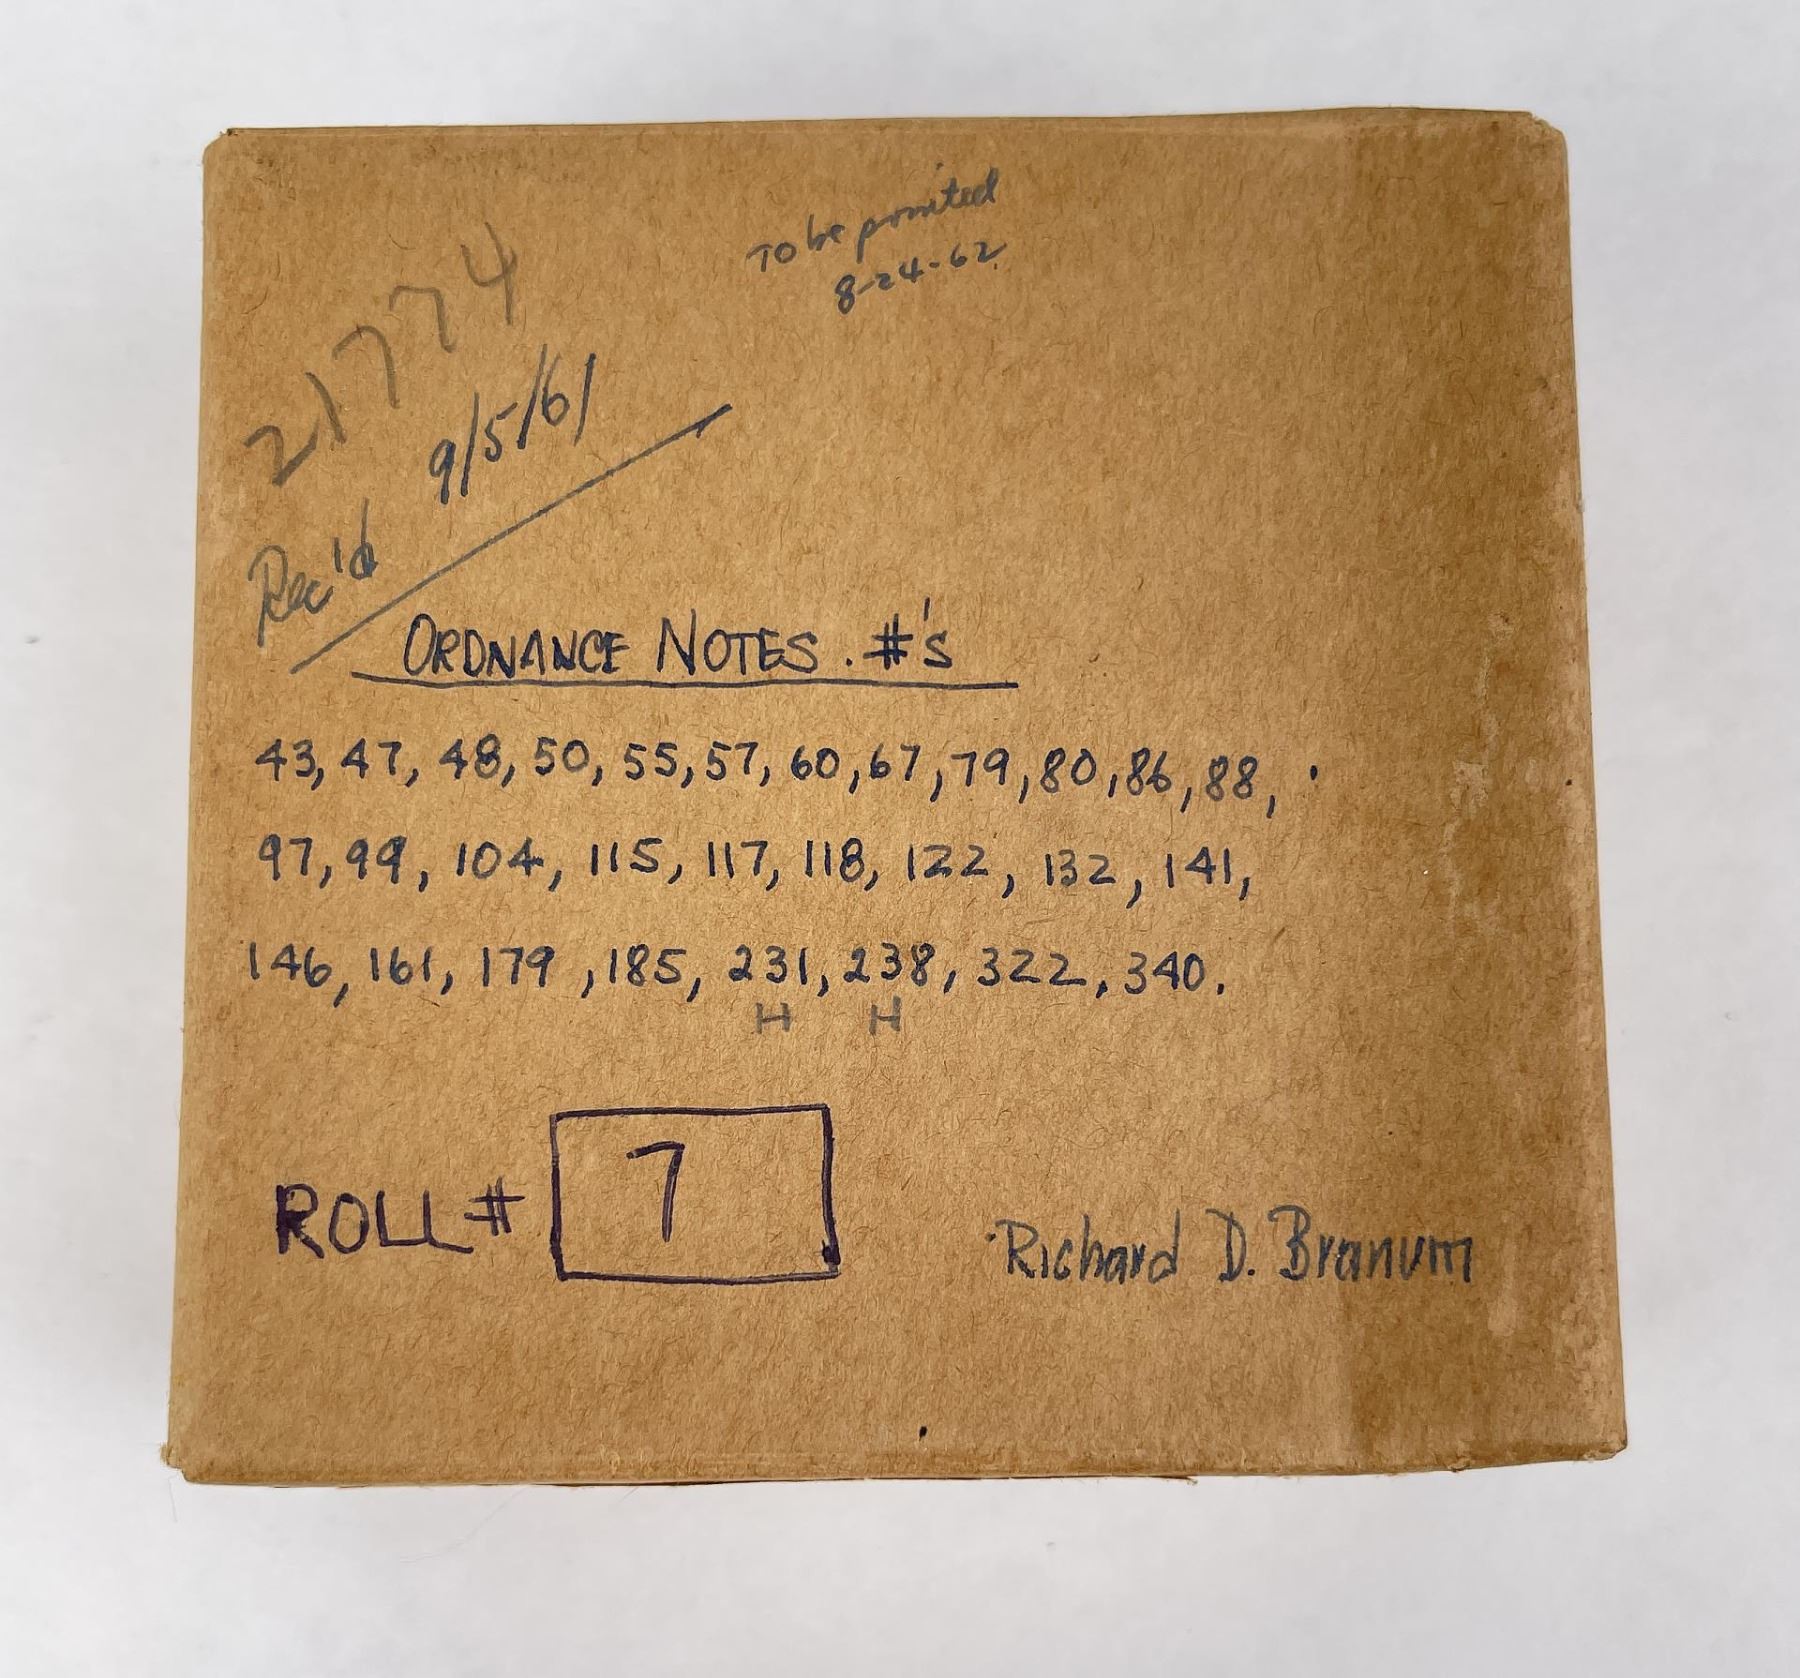 To be printed
8-24-62
21774
9/5/61
Rec'd
ORDNANCE NOTES. #'s
43, 47, 48, 50, 55, 57, 60, 67, 79, 80, 86, 88,
97, 99, 104, 115, 117, 118, 122, 132, 141,
146, 161, 179, 185, 231, 238, 322, 340.
H H
ROLL # 7
Richard D. Branum